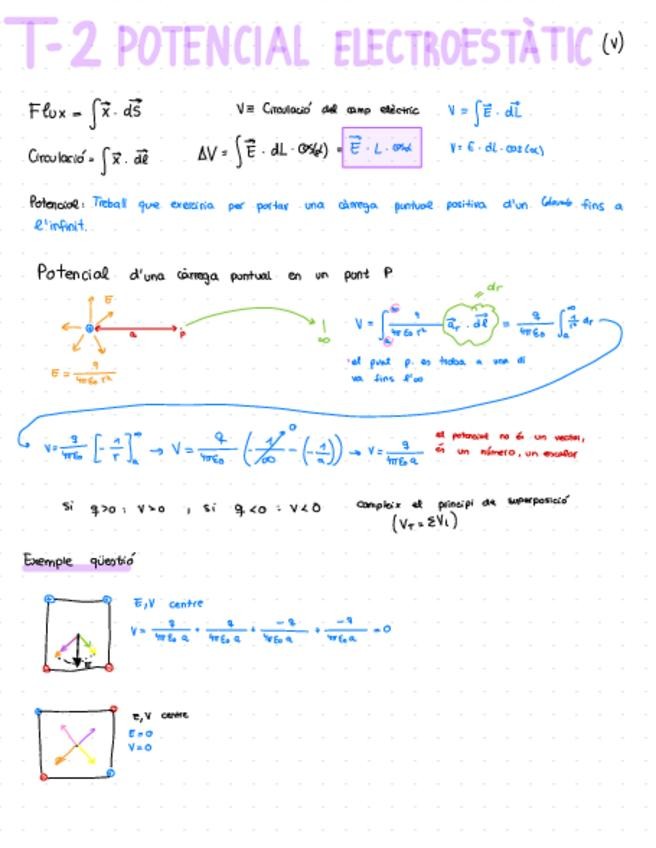 T-2 POTENCIAL ELECTROESTÀTIC (V)
Flux = ∫x⃗ · dS⃗
V ≡ Circulació del camp elèctric
V = ∫E⃗ · dL⃗
Circulació = ∫x⃗ · dl⃗
ΔV = ∫E⃗ · dL · cos(α) = E⃗ · L · cosα
V = E · dL · cos(α)
Potencial: Treball que exerciria per portar una càrrega puntual positiva d'un fins a
l'infinit.
Potencial d'una càrrega puntual en un punt P
E
a
P
∞
E = q / 4πε₀ r²
V = ∫ₐ^∞ q / 4πε₀ r² a⃗r · dl⃗ = q / 4πε₀ ∫ₐ^∞ 1/r² dr
= dr
el punt p. es troba a una di
va fins l'∞
V = q / 4πε₀ [-1/r]ₐ^∞ → V = q / 4πε₀ (-1/∞ - (-1/a)) → V = q / 4πε₀ a
0
el potencial no és un vector,
és un número, un escalar
si q>0 : V>0 , si q<0 : V<0
compleix el principi de superposició
(V_T = ΣV_i)
Exemple qüestió
E, V centre
V = q / 4πε₀ a + q / 4πε₀ a + -q / 4πε₀ a + -q / 4πε₀ a = 0
E
E, V centre
E = 0
V = 0